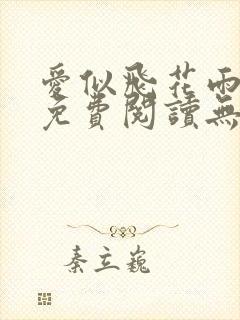 愛似飛花雨
免費閱讀無
秦立巍